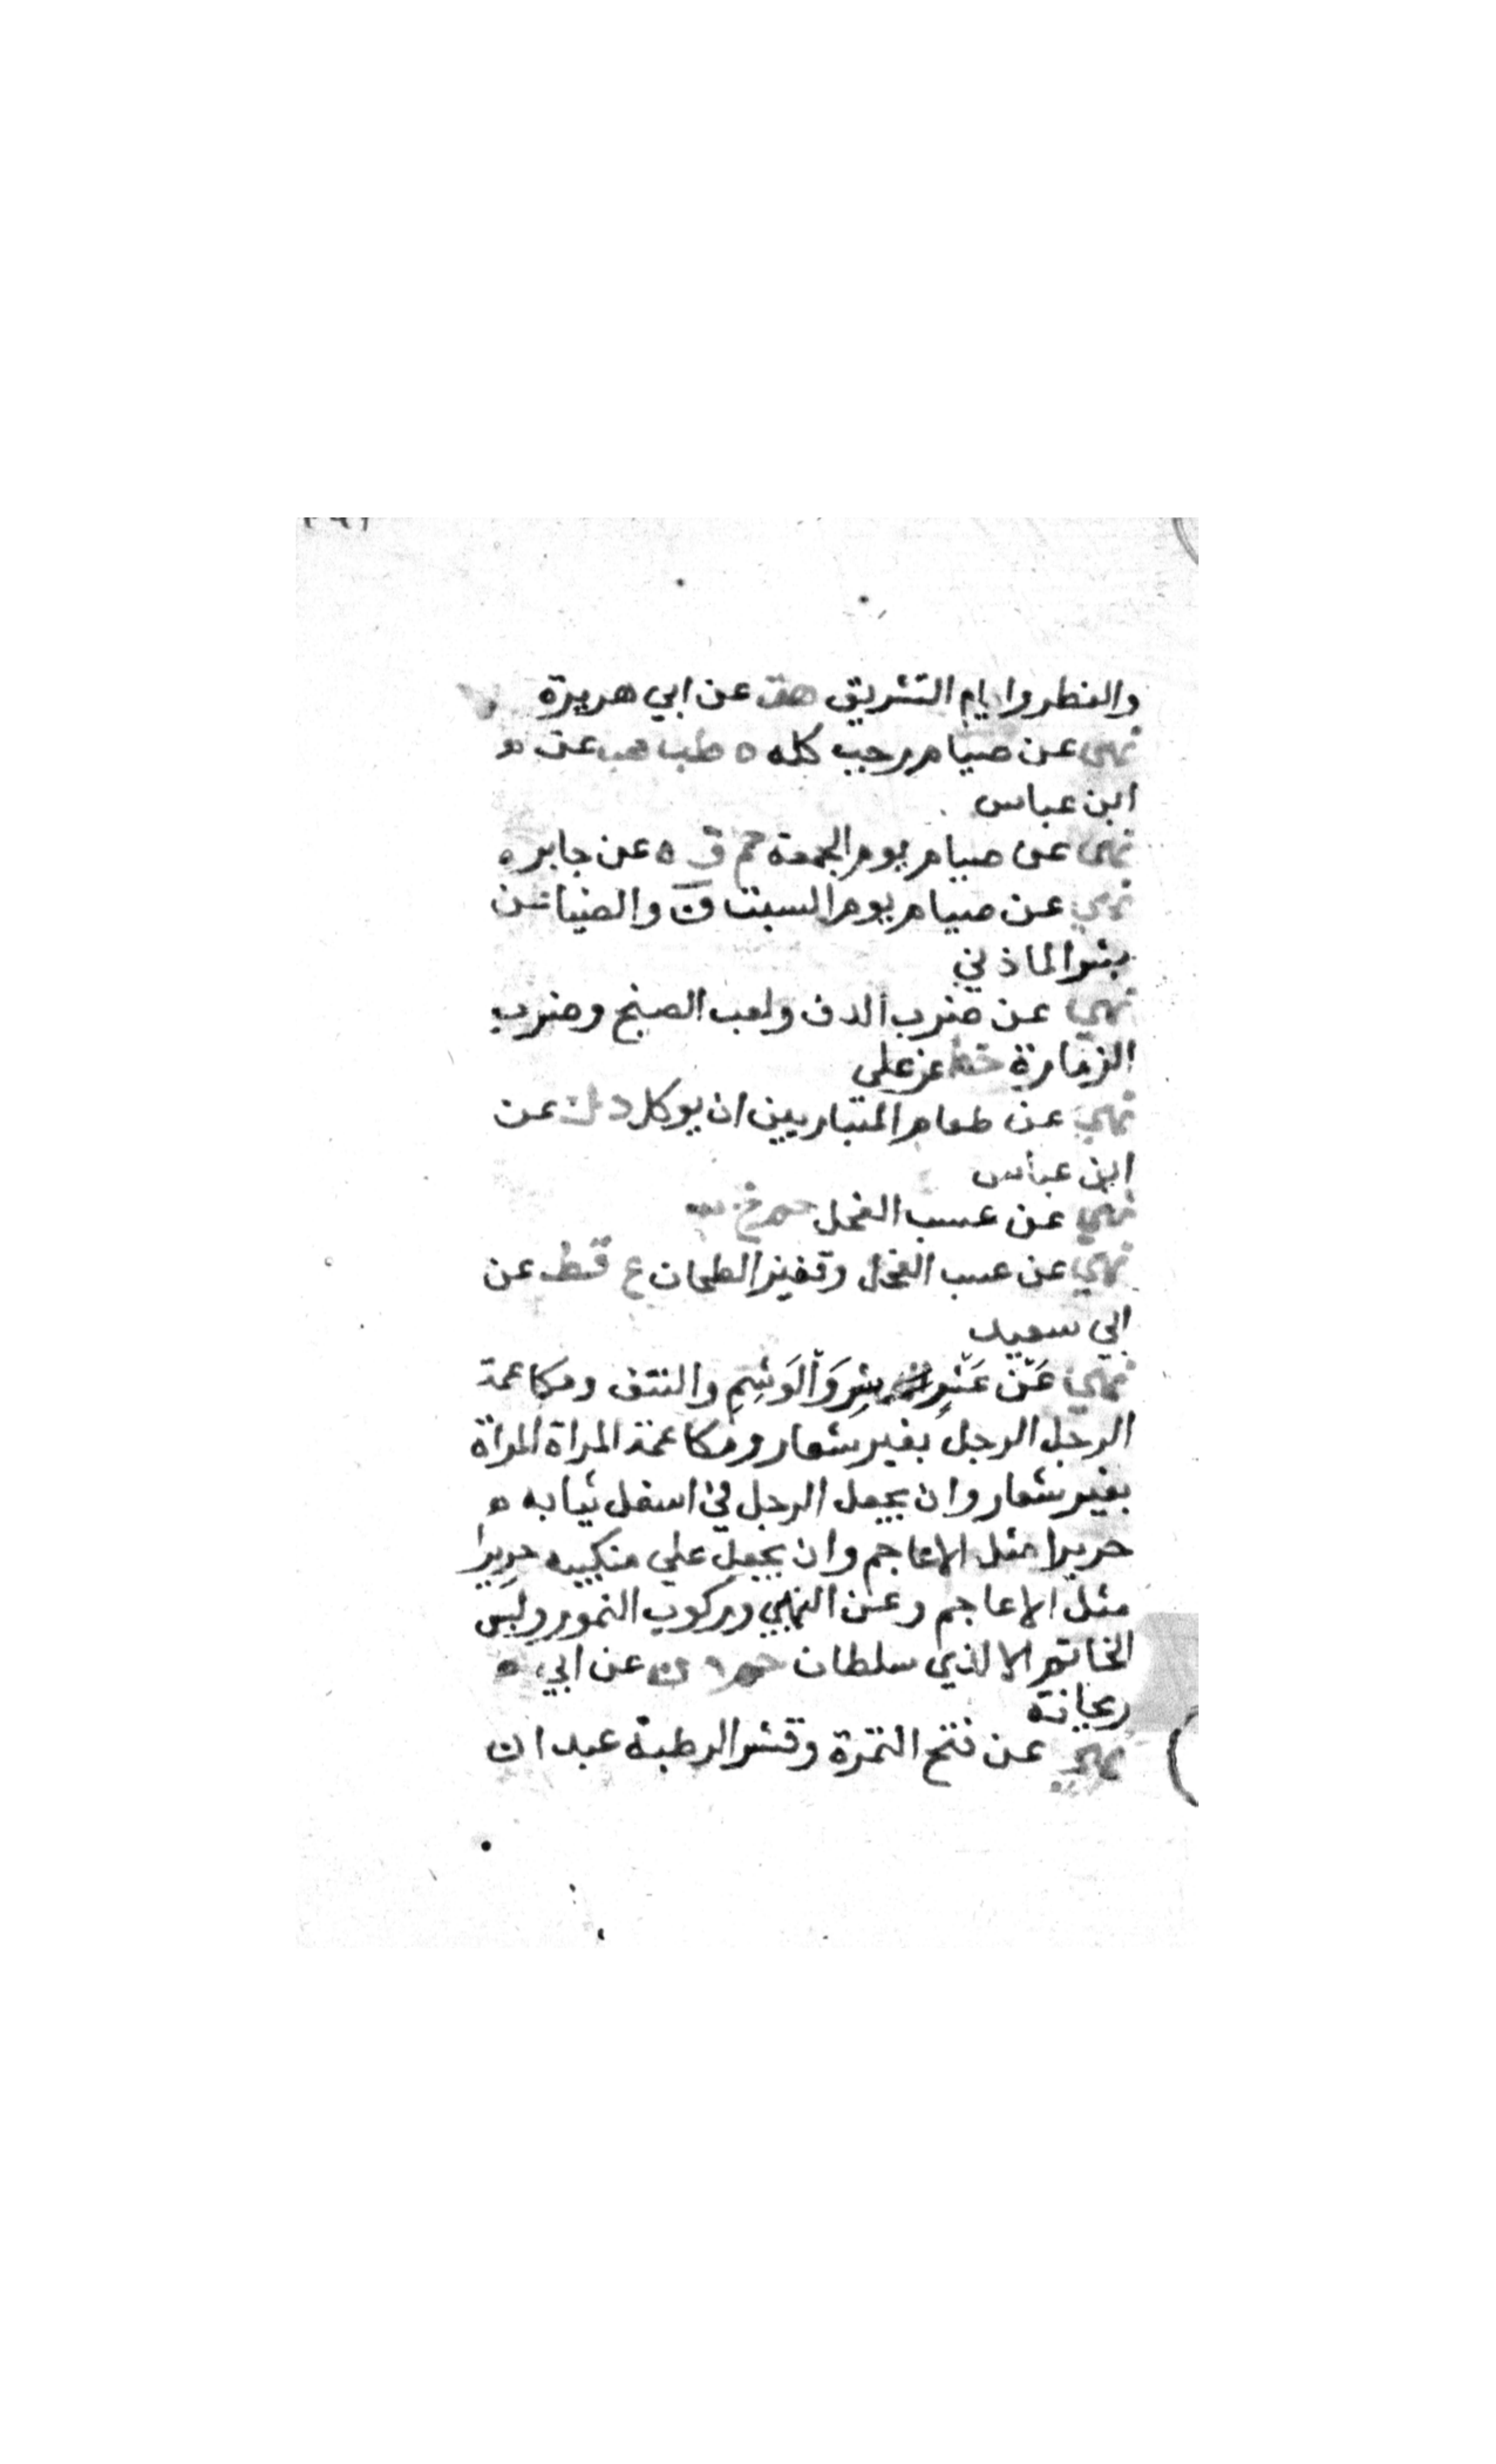 والفطر وايام التشريق هق عن ابي هريرة
نهى عن صيام رجب كله ه طب هب عن ه
ابن عباس
نهى عن صيام يوم الجمعة حم ق ه عن جابر ه
نهي عن صيام يوم السبت ن والضيا عن
بشر الماذني
نهي عن ضرب الدف ولعب الصنج وضرب
الزمارة خط عن علي
نهي عن طعام المتباريين ان يوكل د ك عن
ابن عباس
نهي عن عسب الفحل حم خ
نهي عن عسب الفحل وقفيز الطحان ع قط عن
ابي سعيد
نهي عَنْ عَشْرٍ الوشر وَالْوَشِمِ والنتف ومكاعمة
الرجل الرجل بغير شعار ومكاعمة المراة المراة
بغير شعار وان يجعل الرجل في اسفل ثيابه ه
حريرا مثل الاعاجم وان يجعل علي منكبيه حريرا
مثل الاعاجم وعن النهبي وركوب النمور ولبس
الخاتم الا لذي سلطان حم د ن عن ابي ه
ريحانة
نهي عن فتح التمرة وقشر الرطبة عبدان